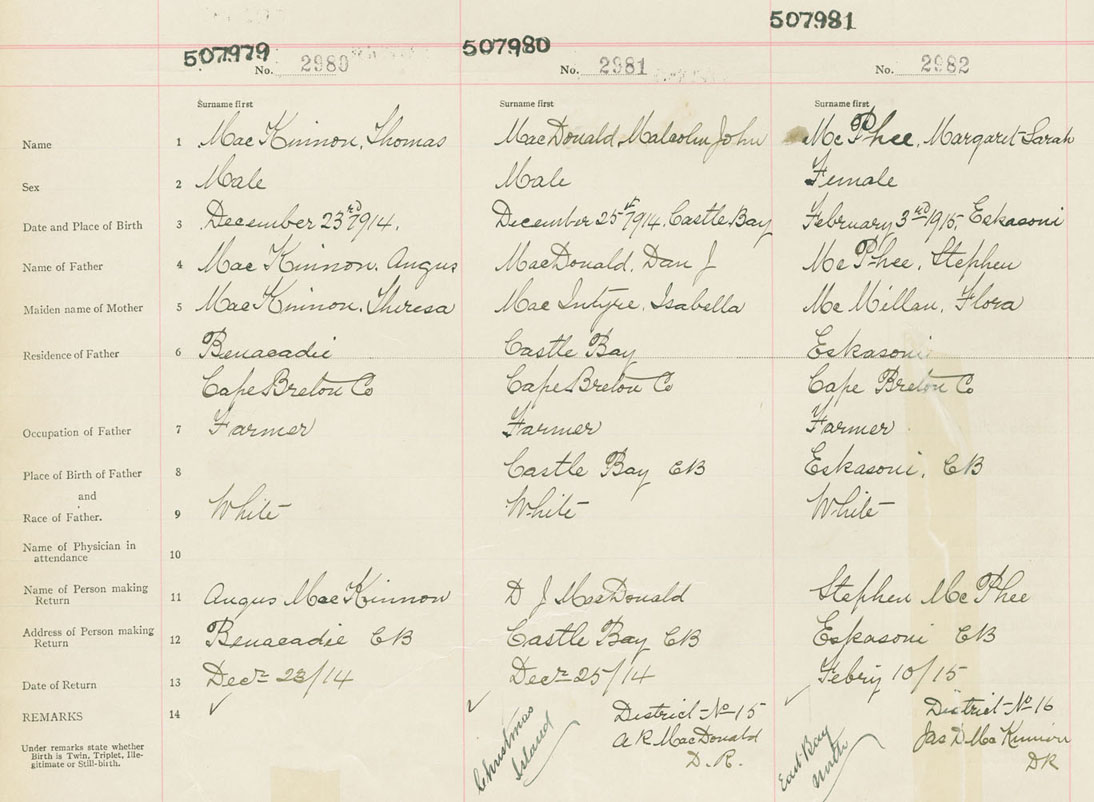 507979 507980 507981
No. 2980 No. 2981 No. 2982
Surname first Surname first Surname first
Name 1 MacKinnon, Thomas MacDonald, Malcolm John McPhee, Margaret Sarah
Sex 2 Male Male Female
Date and Place of Birth 3 December 23rd 1914. December 25th 1914, Castle Bay February 3rd 1915, Eskasoni
Name of Father 4 MacKinnon, Angus MacDonald, Dan J McPhee, Stephen
Maiden name of Mother 5 MacKinnon, Theresa MacIntyre, Isabella McMillan, Flora
Residence of Father 6 Benacadie Castle Bay Eskasoni
Cape Breton Co Cape Breton Co Cape Breton Co
Occupation of Father 7 Farmer Farmer Farmer
Place of Birth of Father 8 Castle Bay CB Eskasoni, CB
and
Race of Father. 9 White White White
Name of Physician in
attendance 10
Name of Person making
Return 11 Angus MacKinnon D J MacDonald Stephen McPhee
Address of Person making
Return 12 Benacadie CB Castle Bay CB Eskasoni CB
Date of Return 13 Decr 23/14 Decr 25/14 Febry 10/15
REMARKS 14 District No 15 District No 16
A R MacDonald Jas D McKinnon
D.R. DR
Christmas
Island
East Bay
north
Under remarks state whether
Birth is Twin, Triplet, Ille-
gitimate or Still-birth.